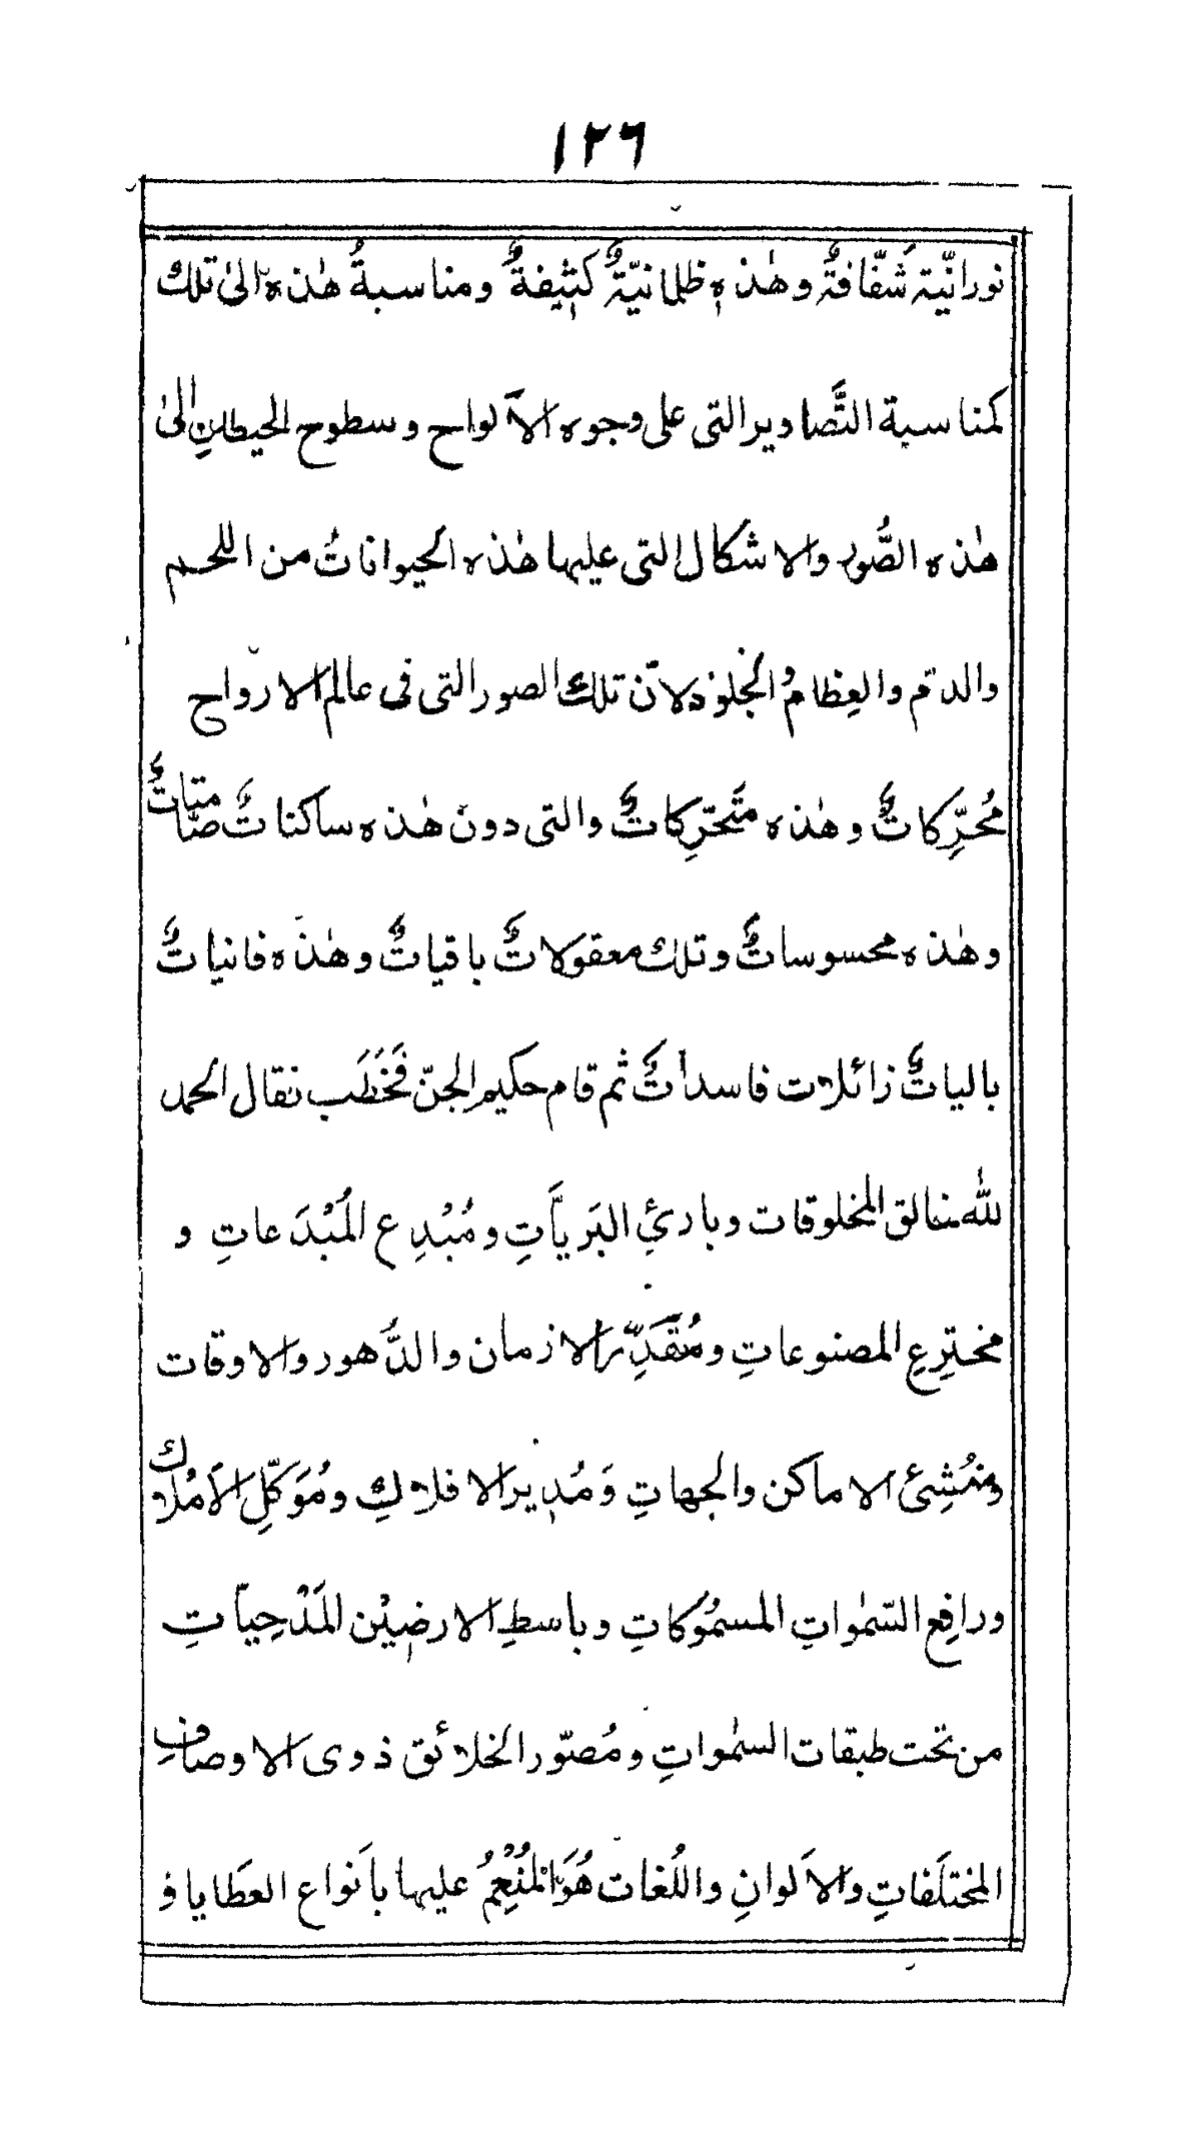 ١٢٦
نورانّية شَفّافةٌ وهٰذه ظلمانيّةٌ كثيفةٌ ومناسبةُ هٰذه الىٰ تلك
كمناسبة التَّصاوير التى على وجوه الاَلواح وسطوح الحيطانِ الىٰ
هٰذه الصُّور والاشكال التى عليها هٰذه الحيواناتُ من اللحم
والدّم والعِظام والجُلود لانّ تلك الصور التى فى عالم الارواح
مُحرِّكاتٌ وهٰذه متَحرِّكاتٌ والتى دونَ هٰذه ساكناتٌ صامتاتٌ
وهٰذه محسوساتٌ وتلك معقولاتٌ باقياتٌ وهٰذَه فانياتٌ
بالياتٌ زائلات فاسداتٌ ثم قام حكيم الجنّ فَخَطَب فقال الحمد
للّٰه خالق المخلوقات وبارئِ البَريّاَتِ ومُبْدِع المُبْدَعاتِ و
مخترِعِ المصنوعاتِ ومُقَدِّر الازمان والدُّهور والاوقات
ومُنْشِئ الاماكن والجهاتِ وَمُدير الافلاكِ ومُوَكِّلِ الاَمْلاك
ورافِع السّمٰواتِ المسمُوكاتِ وباسطِ الارضِيْن المَدْحِيّاتِ
من تحت طبقات السمٰواتِ ومُصوّر الخلائق ذوى الاوصافِ
المختلَفاتِ والاَلوانِ واللُغات هُوَ المُنْعِمُ عليها باَنواع العَطايا و